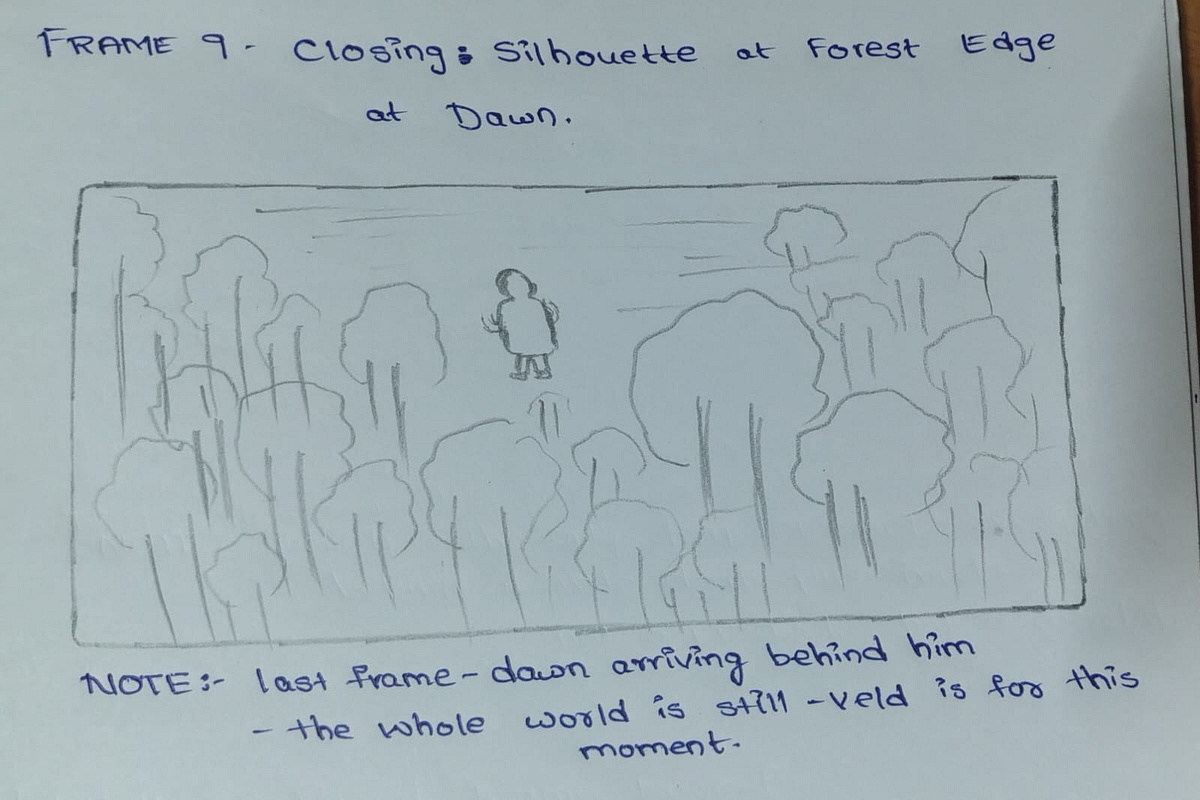 FRAME 9 - Closing: Silhouette at Forest Edge
at Dawn.
NOTE:- last frame - dawn arriving behind him
- the whole world is still - veld is for this
moment.